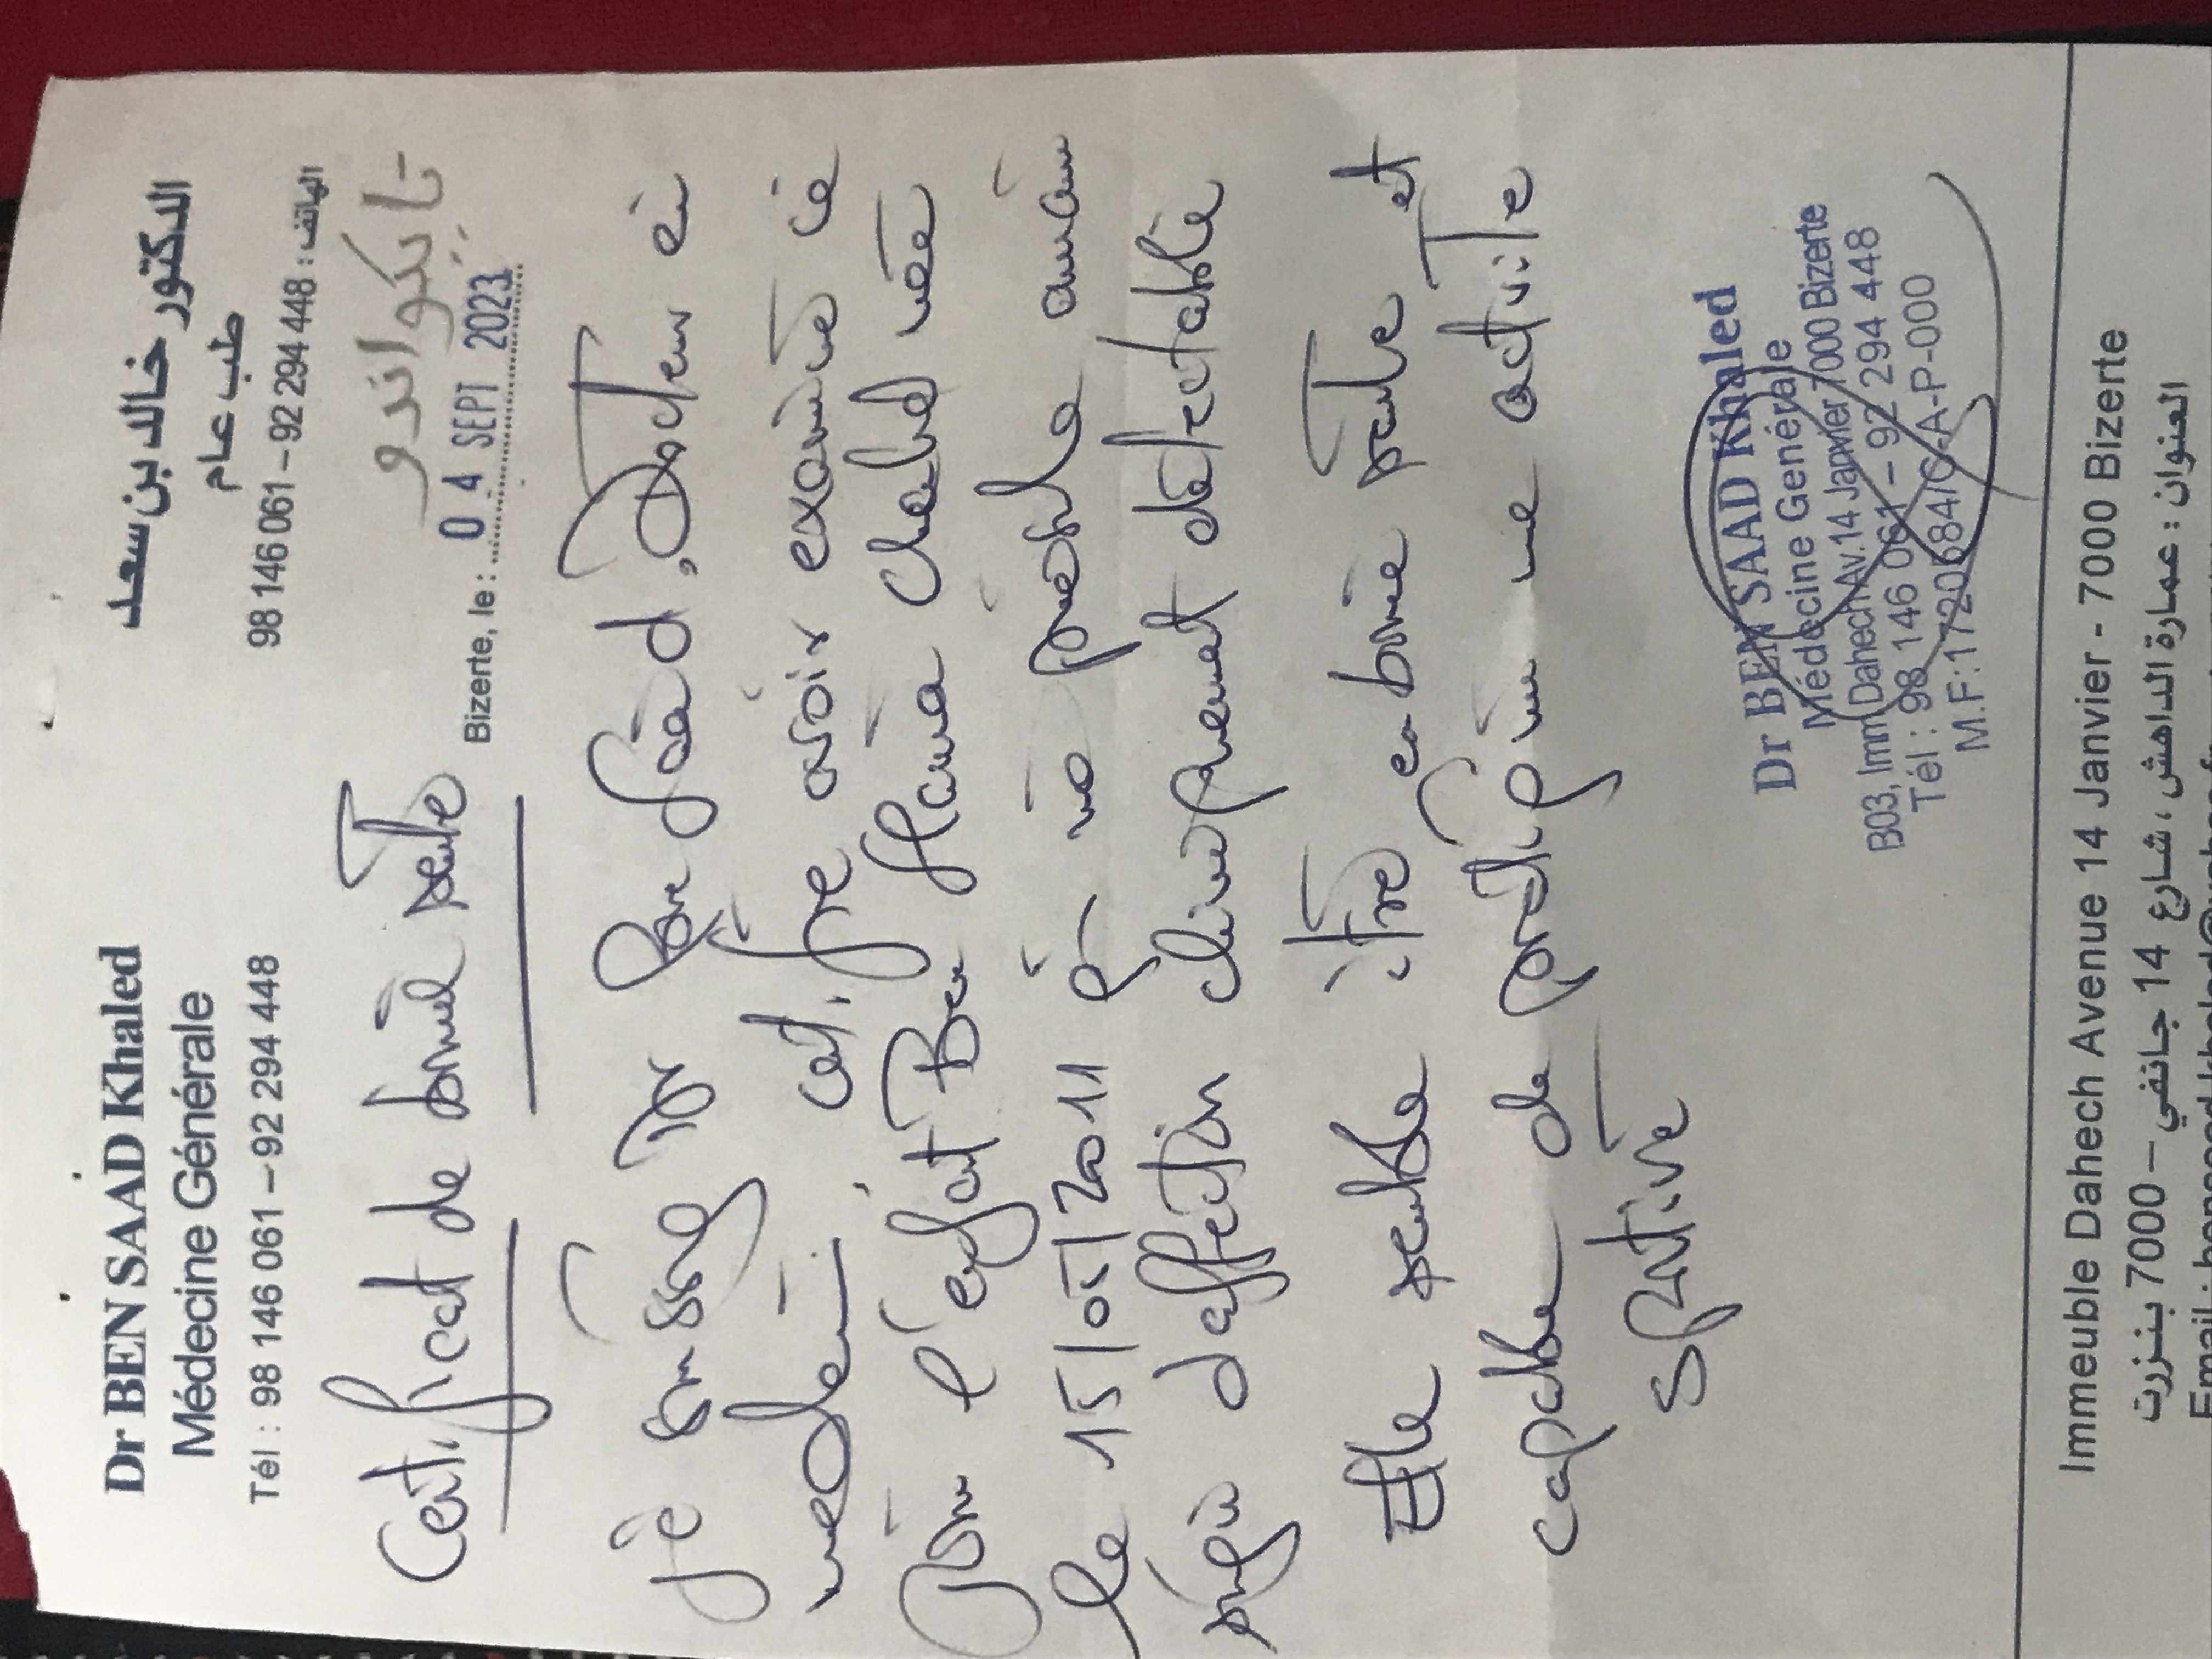 Dr BEN SAAD Khaled
Médecine Générale
Tél : 98 146 061 – 92 294 448
الدكتور خالد بن سعد
طب عام
الهاتف : 448 294 92 – 061 146 98
تايكواندو
Certificat de bonne santé
Bizerte, le : 0 4 SEPT 2023
Je soussigné Dr Ben Saad, Docteur en
médecine certifie avoir examiné ce
jour l'enfant Ben Hamna Chahd née
le 15/05/2011 ne présente aucun
signe d'affection cliniquement détectable
Elle semble être en bonne santé et
capable de pratiquer une activité
sportive
Dr BEN SAAD Khaled
Médecine Genérale
B03, Imm Dahech Av.14 Janvier 7000 Bizerte
Tél : 98 146 061 – 92 294 448
M.F:1720684/C-A-P-000
Immeuble Dahech Avenue 14 Janvier - 7000 Bizerte
العنوان : عمارة الداهش ، شارع 14 جانفي – 7000 بنزرت
Email :